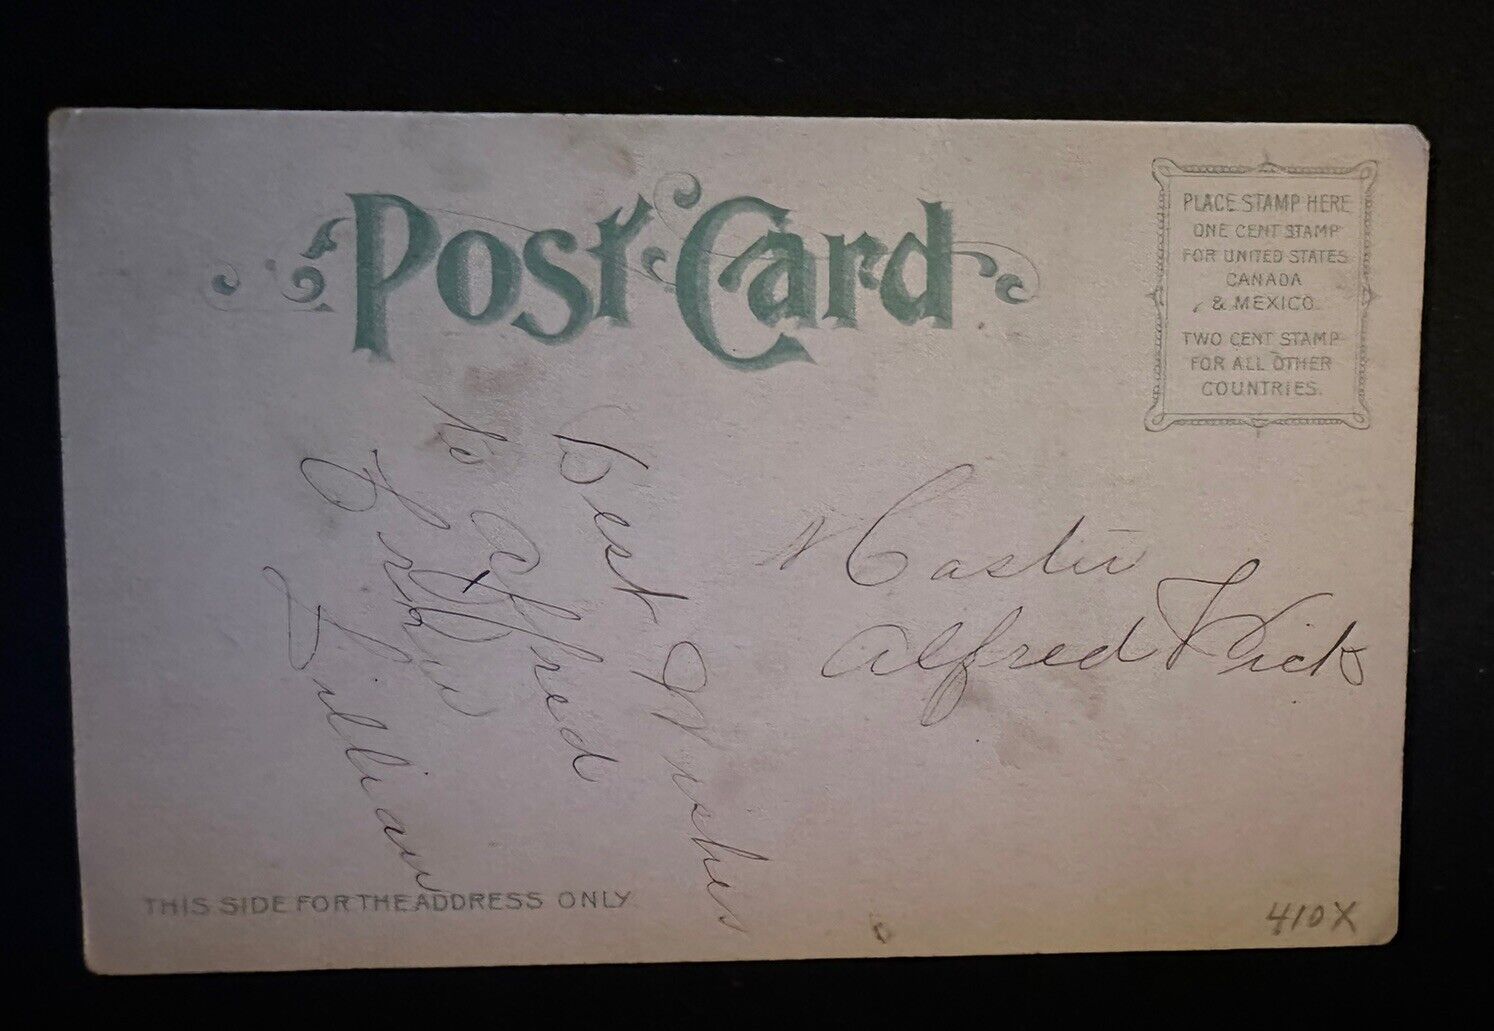 Post Card
PLACE STAMP HERE
ONE CENT STAMP
FOR UNITED STATES
CANADA
& MEXICO.
TWO CENT STAMP
FOR ALL OTHER
COUNTRIES.
Best Wishes
to Alfred
From
Lillian
Master
Alfred Wick
THIS SIDE FOR THE ADDRESS ONLY.
410X